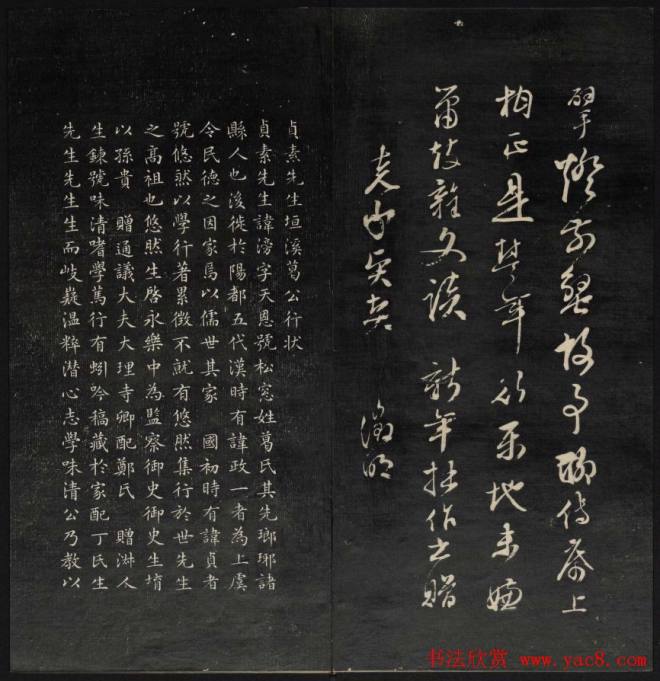 擘燈前蠒故事聊傳席上
柑正是豐年行樂地未
簫鼓雜文談 新年拙作書贈
徵明
貞素先生垣溪葛公行狀
貞素先生諱滂字天恩號松窓姓葛氏其先瑯琊諸
縣人也後徙於陽都五代漢時有諱政一者為上虞
令民德之因家焉以儒世其家 國初時有諱貞者
號悠然以學行著累徵不就有悠然集行於世先生
之高祖也悠然生啓永樂中為監察御史御史生堉
以孫貴 贈通議大夫大理寺卿配鄭氏 贈淑人
生鍊號味清嗜學篤行有蚓吟稿藏於家配丁氏生
先生先生生而岐嶷溫粹潛心志學味清公乃教以
书法欣赏 www.yac8.com